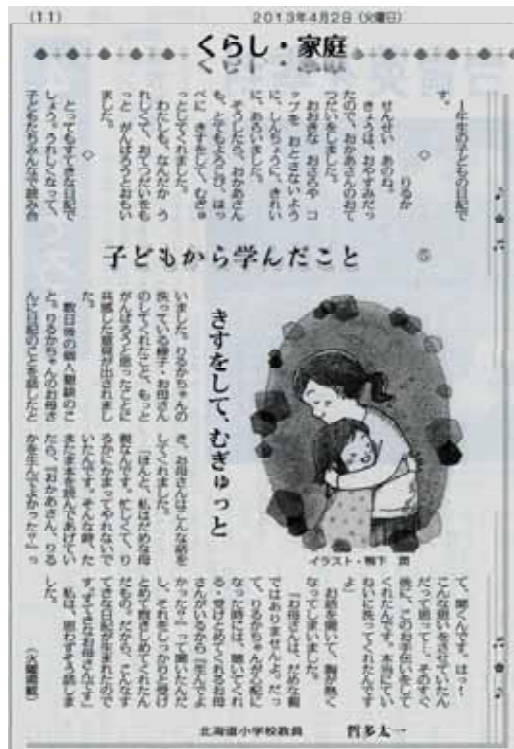 (11)
2013年4月2日(火曜日)
くらし・家庭
1年生の子どもの日記で
す。
◇
せんせい あのね。 りるか
きょうは、おやすみだっ
たので、おかあさんのおて
つだいをしました。
おおきな おさらや コ
ップを おとさないよう
に、しんちょうに、きれい
に、あらいました。
そうしたら、おかあさん
も、とてもよろこび、ほっ
ぺに きすをして、むぎゅ
っとしてくれました。
わたしも、なんだか う
れしくて、おてつだいをも
っと がんばろうとおもい
ました。
◇
とってもすてきな日記で
しょう。うれしくなって、
子どもたちみんなで読み合
子どもから学んだこと
⑤
きすをして、むぎゅっと
いました。りるかちゃんの
洗っている様子・お母さん
のしてくれたこと、もっと
がんばろうと思ったことに
共感した意見が出されまし
た。
数日後の個人懇談のこ
と。りるかちゃんのお母さ
んに日記のことを話したと
き、お母さんはこんな話を
してくれました。
「ほんと、私はだめな母
親なんです。忙しくて、り
るかにかまってやれないで
いたんです。そんな時、た
またま本を読んであげてい
たら、『おかあさん、りる
かを生んでよかった?』っ
イラスト・鴨下 潤
て、聞くんです。はっ!
こんな思いをさせていたん
だって思って…。そのすぐ
後に、このお手伝いをして
くれたんです。本当にてい
ねいに洗ってくれたんです
よ」
お話を聞いて、胸が熱く
なってしまいました。
「お母さんは、だめな親
ではありませんよ。だっ
て、りるかちゃんが心配に
なった時には、聴いてくれ
る・受けとめてくれるお母
さんがいるから『生んでよ
かった?』って聞いたんだ
し、それをしっかりと受け
とめて抱きしめてくれたん
だもの。だから、こんなす
てきな日記が生まれたので
す。すてきなお母さんです」
私は、思わずそう話しま
した。
(火曜掲載)
北海道小学校教員 哲多太一